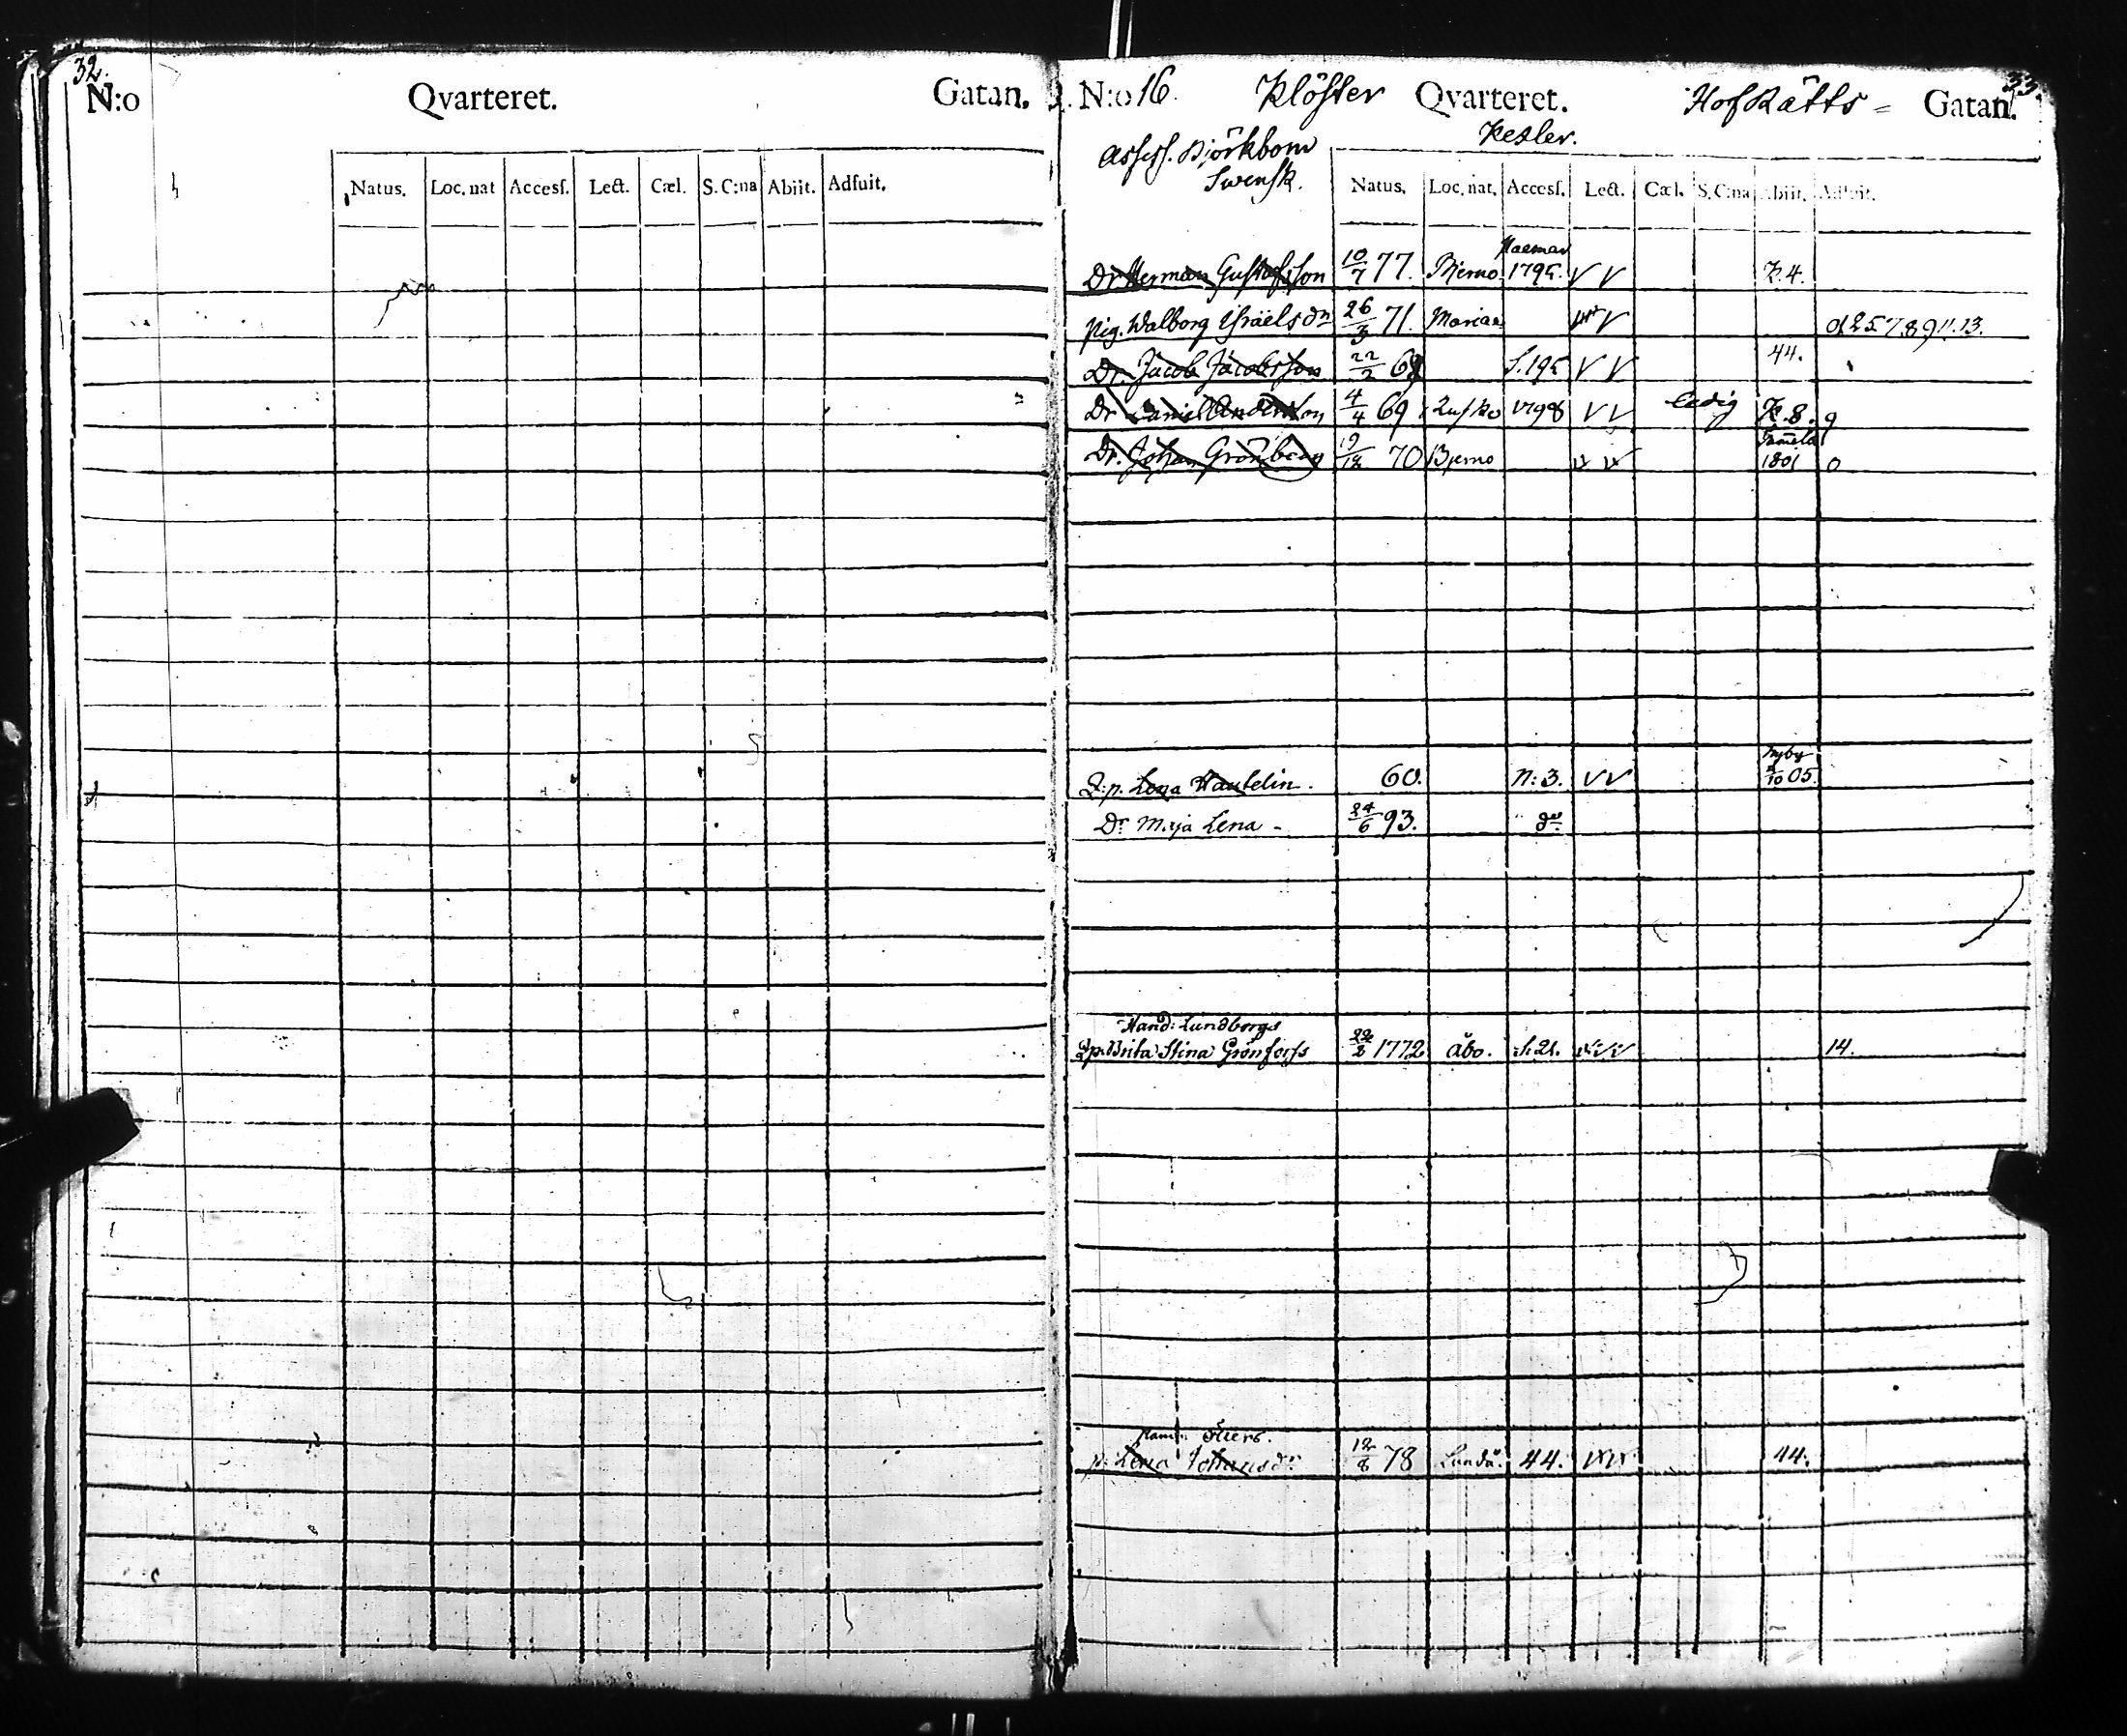 32.
N:o Qvarteret. Gatan.
Natus. Loc. nat Accesſ. Lect. Cœl. S. C:na Abiit. Adfuit.
33.
N:o 16. Klöster Qvarteret. HofRätts- Gatan.
Kesler.
Assess. Björkbom
Swensk.
Natus. Loc. nat. Accesſ. Lect. Cœl. S. C:na Abiit. Adfuit.
Dr Herman Gustafsson 10/7 77. Bjerno 1795. V V K. 4.
Pig. Walborg Israels dr 26/3 71. Mariae V 0/ 2 5 7. 8. 9 11. 13.
Dr. Jacob Jacobsson 22/2 69 S. 195 V V 44.
Dr Daniel Anderson 4/4 69 Rusko 1798 V V ledig K. 8. 9
Dr. Johan Grönberg 19/12 70 Bjerno 1801 0
Q:p. Lena Hautelin. 60. N: 3. V V Nyby 05
Dr Maja Lena - 24/6 93. do
Hand: Lundbergs
Qp. Brita Stina Grönforss 22/2 1772 Åbo. S. 21. 14.
p. Lena Johansdr 12/8 78 Lundå. 44. 44.